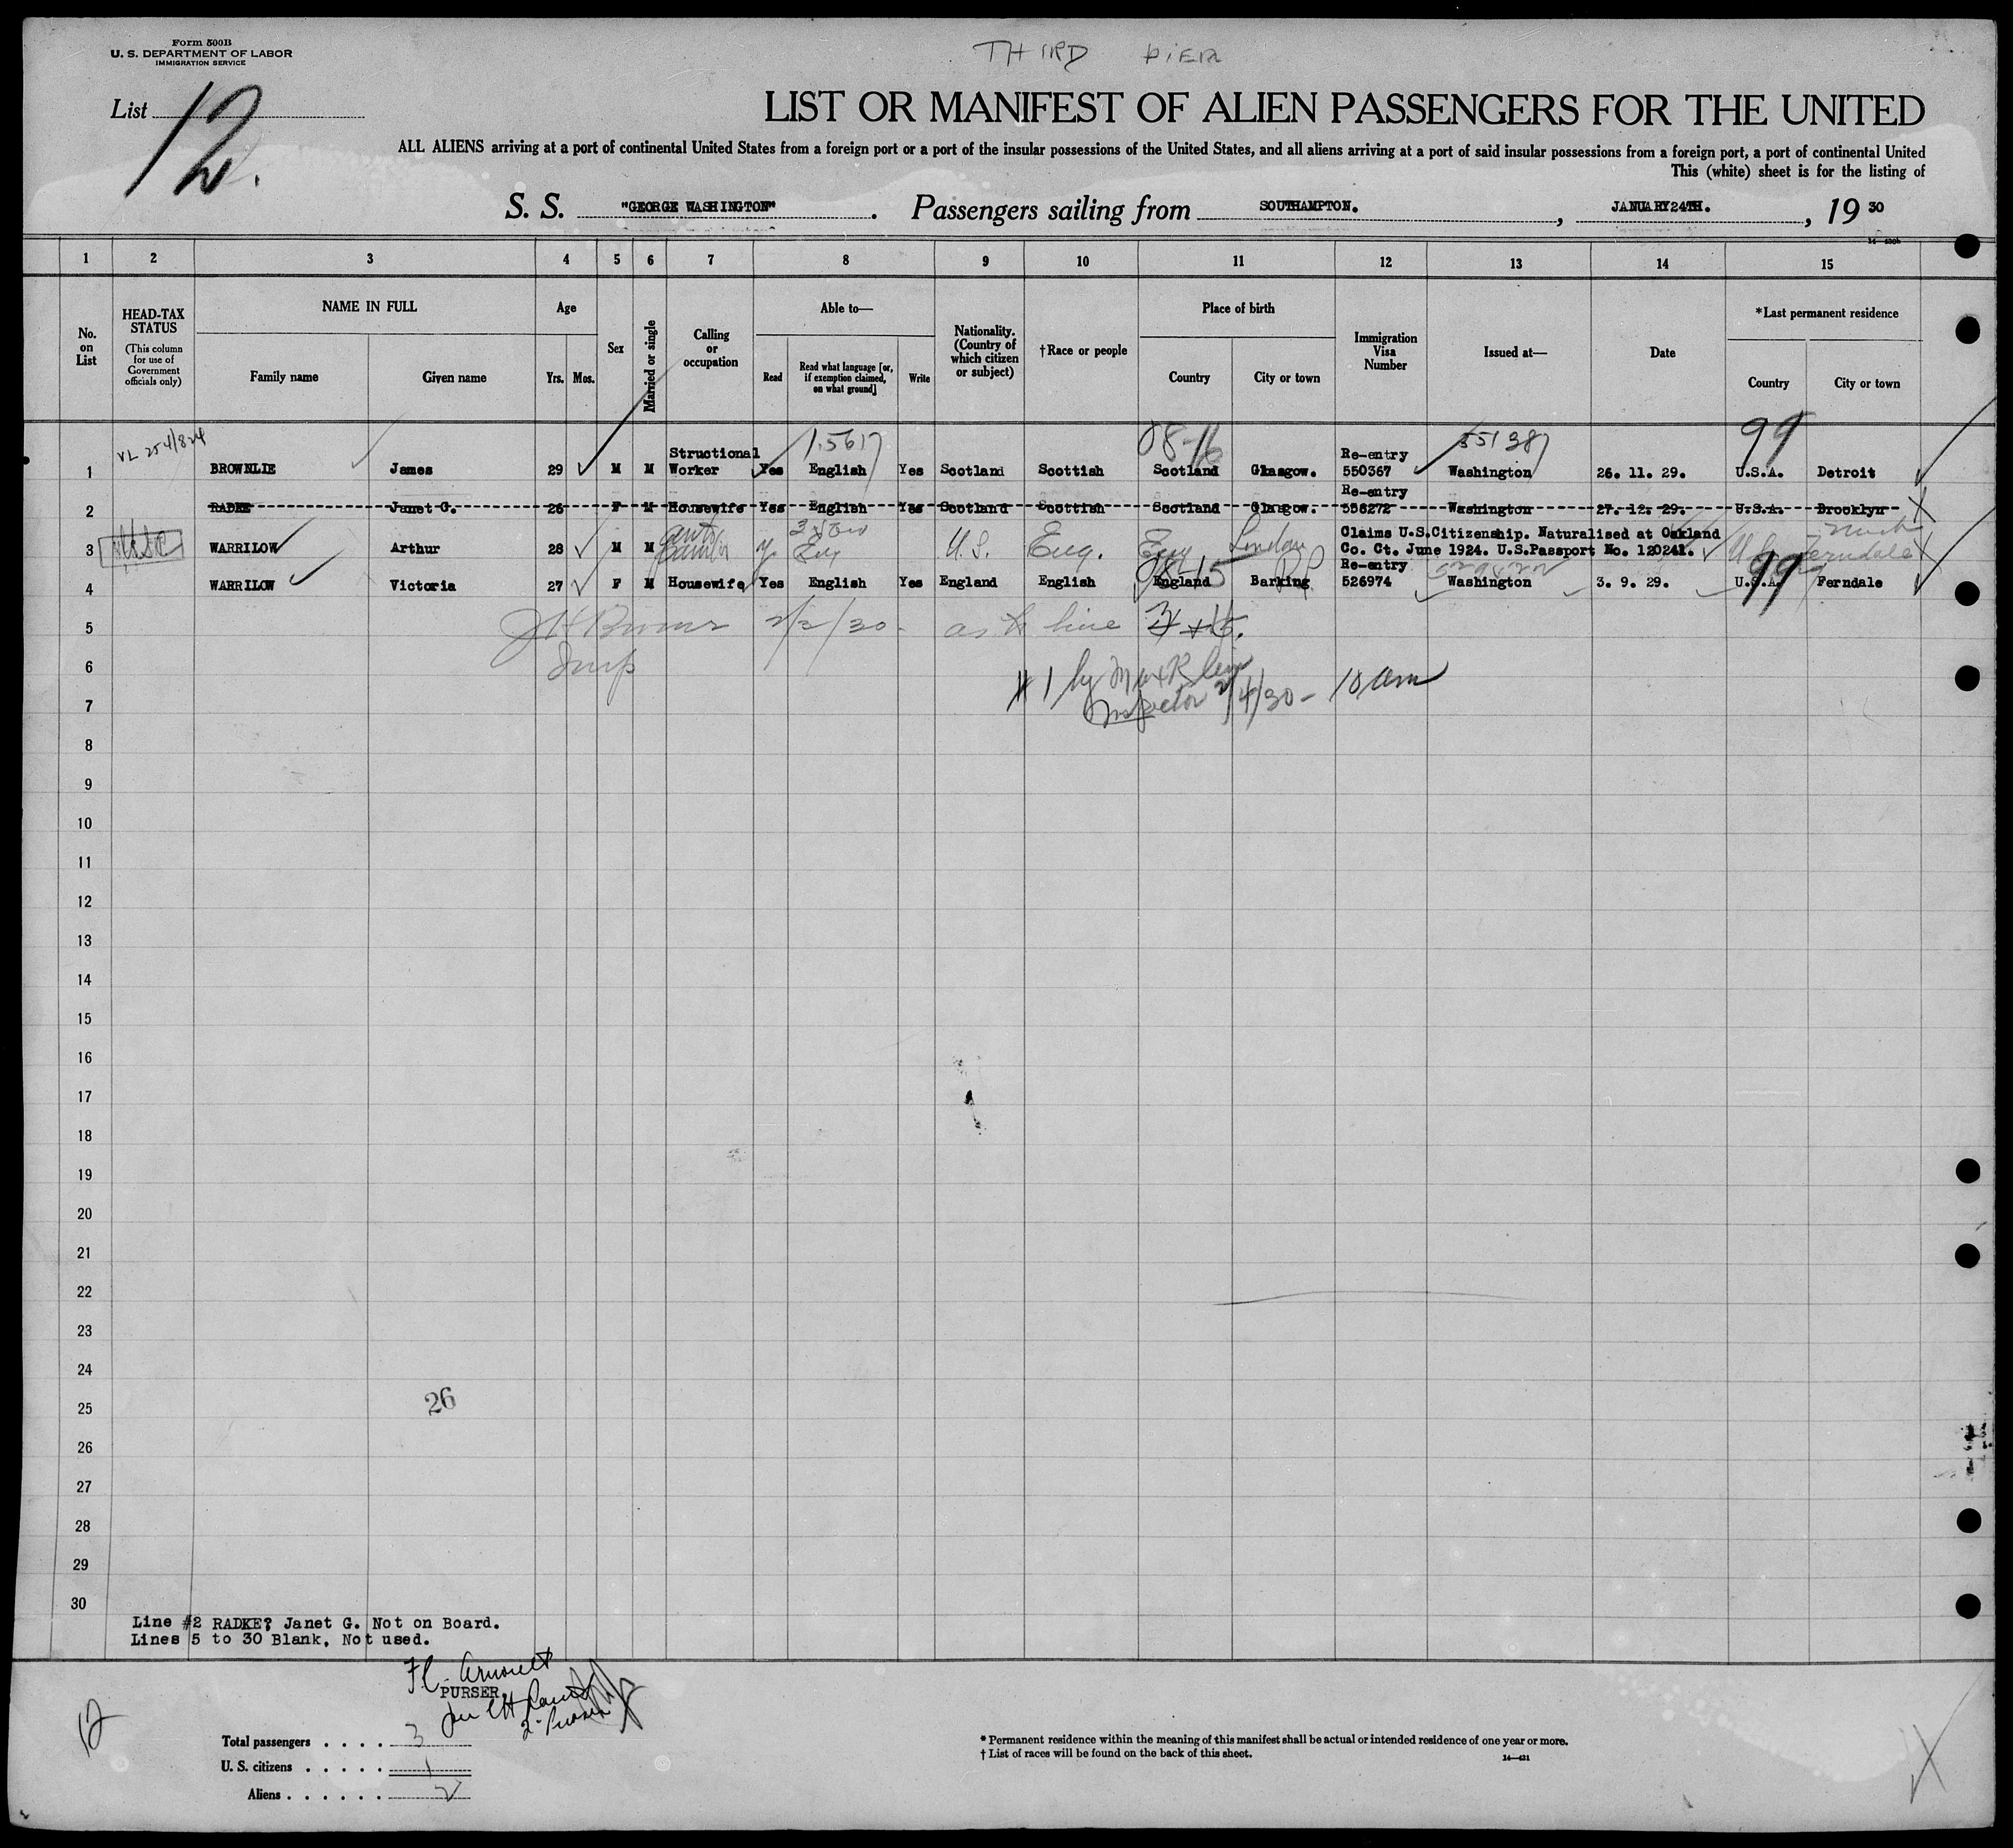 Form 500B
U. S. DEPARTMENT OF LABOR
IMMIGRATION SERVICE
THIRD PIER
List 12.
LIST OR MANIFEST OF ALIEN PASSENGERS FOR THE UNITED
ALL ALIENS arriving at a port of continental United States from a foreign port or a port of the insular possessions of the United States, and all aliens arriving at a port of said insular possessions from a foreign port, a port of continental United
This (white) sheet is for the listing of
S. S. "GEORGE WASHINGTON". Passengers sailing from SOUTHAMPTON. , JANUARY24TH. , 19 30
1 2 3 4 5 6 7 8 9 10 11 12 13 14 15
No. on List
HEAD-TAX STATUS
(This column for use of Government officials only)
NAME IN FULL
Family name Given name
Age
Yrs. Mos.
Sex
Married or single
Calling or occupation
Able to—
Read
Read what language [or, if exemption claimed, on what ground]
Write
Nationality. (Country of which citizen or subject)
†Race or people
Place of birth
Country City or town
Immigration Visa Number
Issued at—
Date
*Last permanent residence
Country City or town
VL 254/824 1.5617 08-16 551387 99
1 BROWNLIE James 29 M M Structional Worker Yes English Yes Scotland Scottish Scotland Glasgow. Re-entry 550367 Washington 26. 11. 29. U.S.A. Detroit
2 RADKE Janet G. 26 F M Housewife Yes English Yes Scotland Scottish Scotland Glasgow. Re-entry 556272 Washington 27. 12. 29. U.S.A. Brooklyn
3 USC WARRILOW Arthur 28 M M auto y Eng U.S. Eng. Eng London Claims U.S.Citizenship. Naturalised at Oakland Co. Ct. June 1924. U.S.Passport No. 120241. U.S. Ferndale Mich
08-15 99
4 WARRILOW Victoria 27 F M Housewife Yes English Yes England English England Barking Re-entry 526974 Washington 3. 9. 29. U.S.A. Ferndale
5 2/2/30 - as to line
6 Insp
# 1 by Max Klein
7 Inspector 2/4/30 - 10 am
8
9
10
11
12
13
14
15
16
17
18
19
20
21
22
23
24
25 26
26
27
28
29
30
Line #2 RADKE? Janet G. Not on Board.
Lines 5 to 30 Blank, Not used.
PURSER
12
Total passengers . . . . 3
U. S. citizens . . . . . 1
Aliens . . . . . . 2
* Permanent residence within the meaning of this manifest shall be actual or intended residence of one year or more.
† List of races will be found on the back of this sheet.
14—431